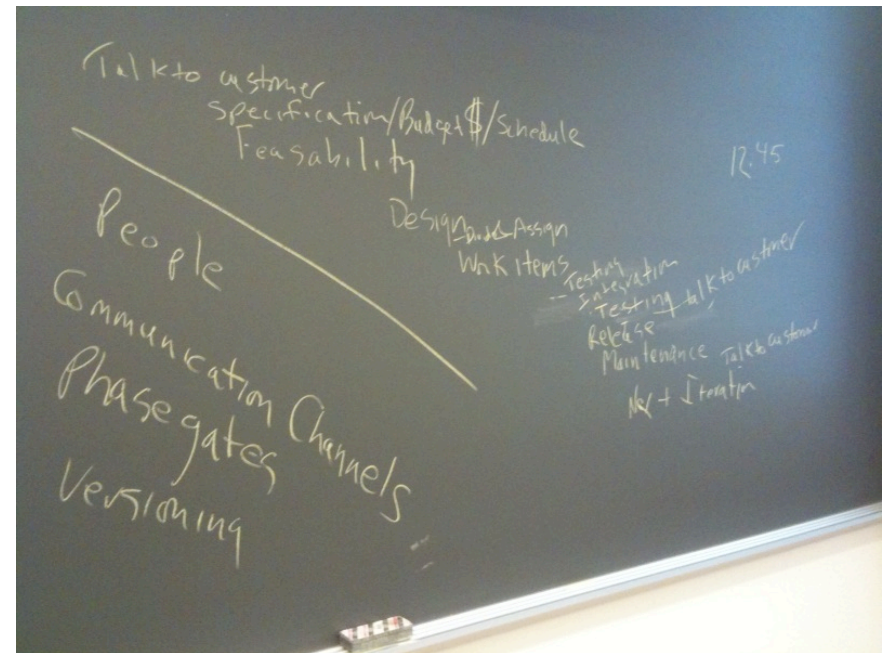 Talk to customer
Specification/Budget $/Schedule
Feasability
12:45
Design Assign
Work Items
Testing
Integration
Testing talk to customer
Release
Maintenance Talk to customer
Next Iteration
People
Communication Channels
Phase gates
Versioning